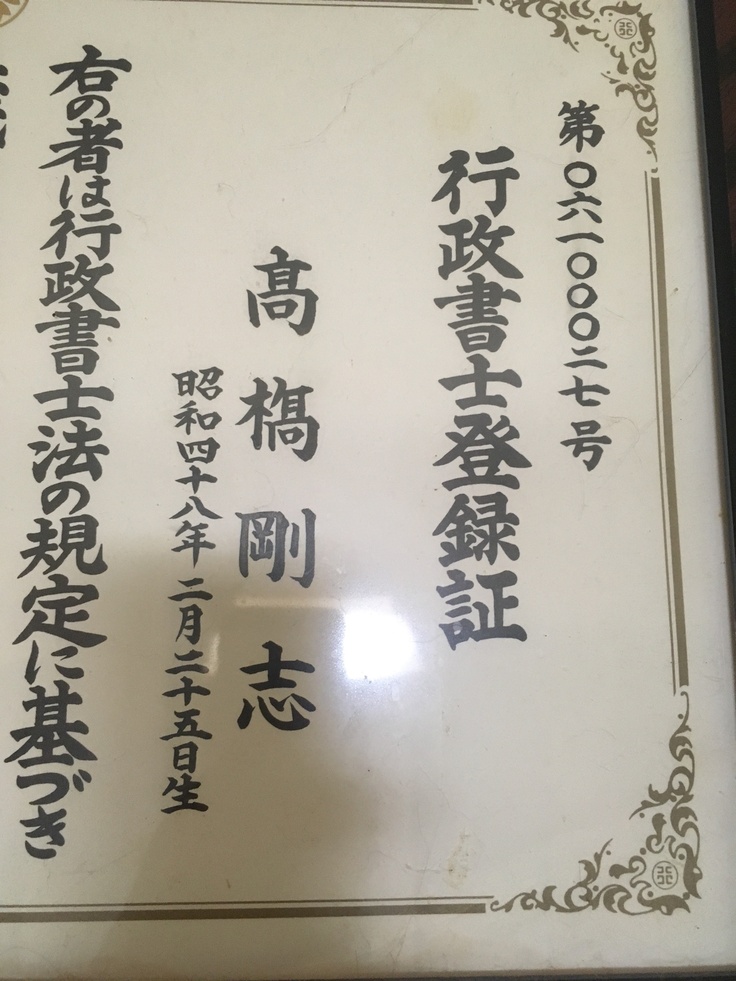 第〇六一〇〇〇二七号
行政書士登録証
髙橋剛志
昭和四十八年二月二十五日生
右の者は行政書士法の規定に基づき